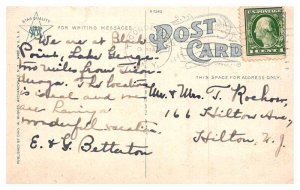 STAR QUALITY
FOR WRITING MESSAGES
POST
CARD
THIS SPACE FOR ADDRESS ONLY.
1 CENT 1
We are at
Point, Lake George
two miles from Ticon-
deroga. This location
is ideal and
are having a
wonderful vacation.
E. & G. Betterton
Mr. & Mrs. T. Rockow,
166 Hilton Ave,
Hilton, N. J.